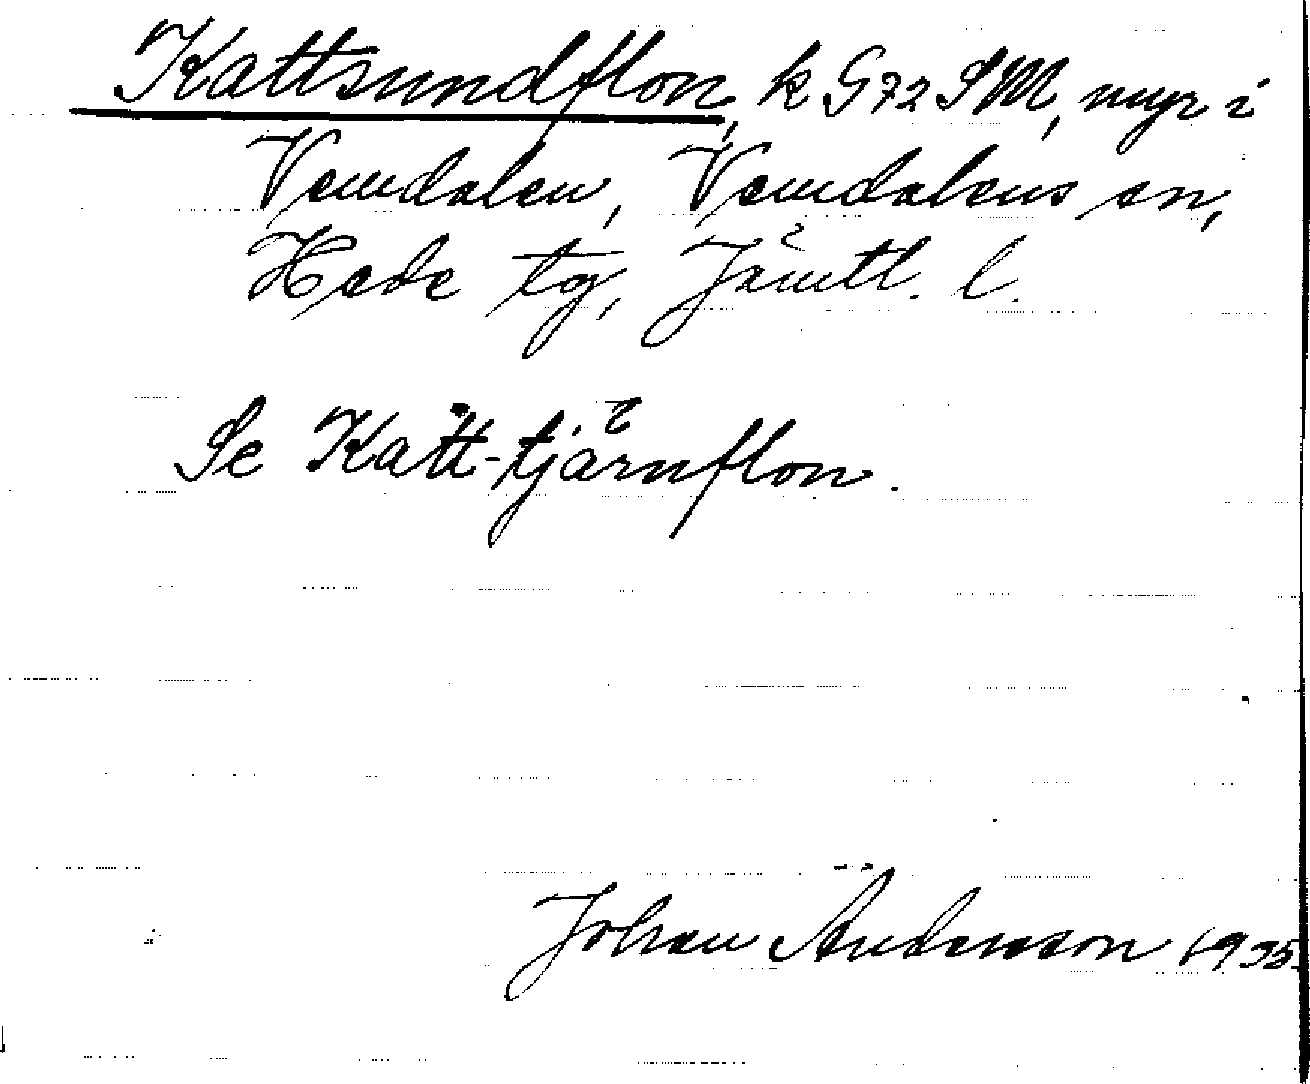 Kattsundflon, k G72 SM, myr i
Vemdalen, Vemdalens sn,
Hede tg, Jämtl. l.
Se Katt-tjärnflon.
Johan Anderson 1935.